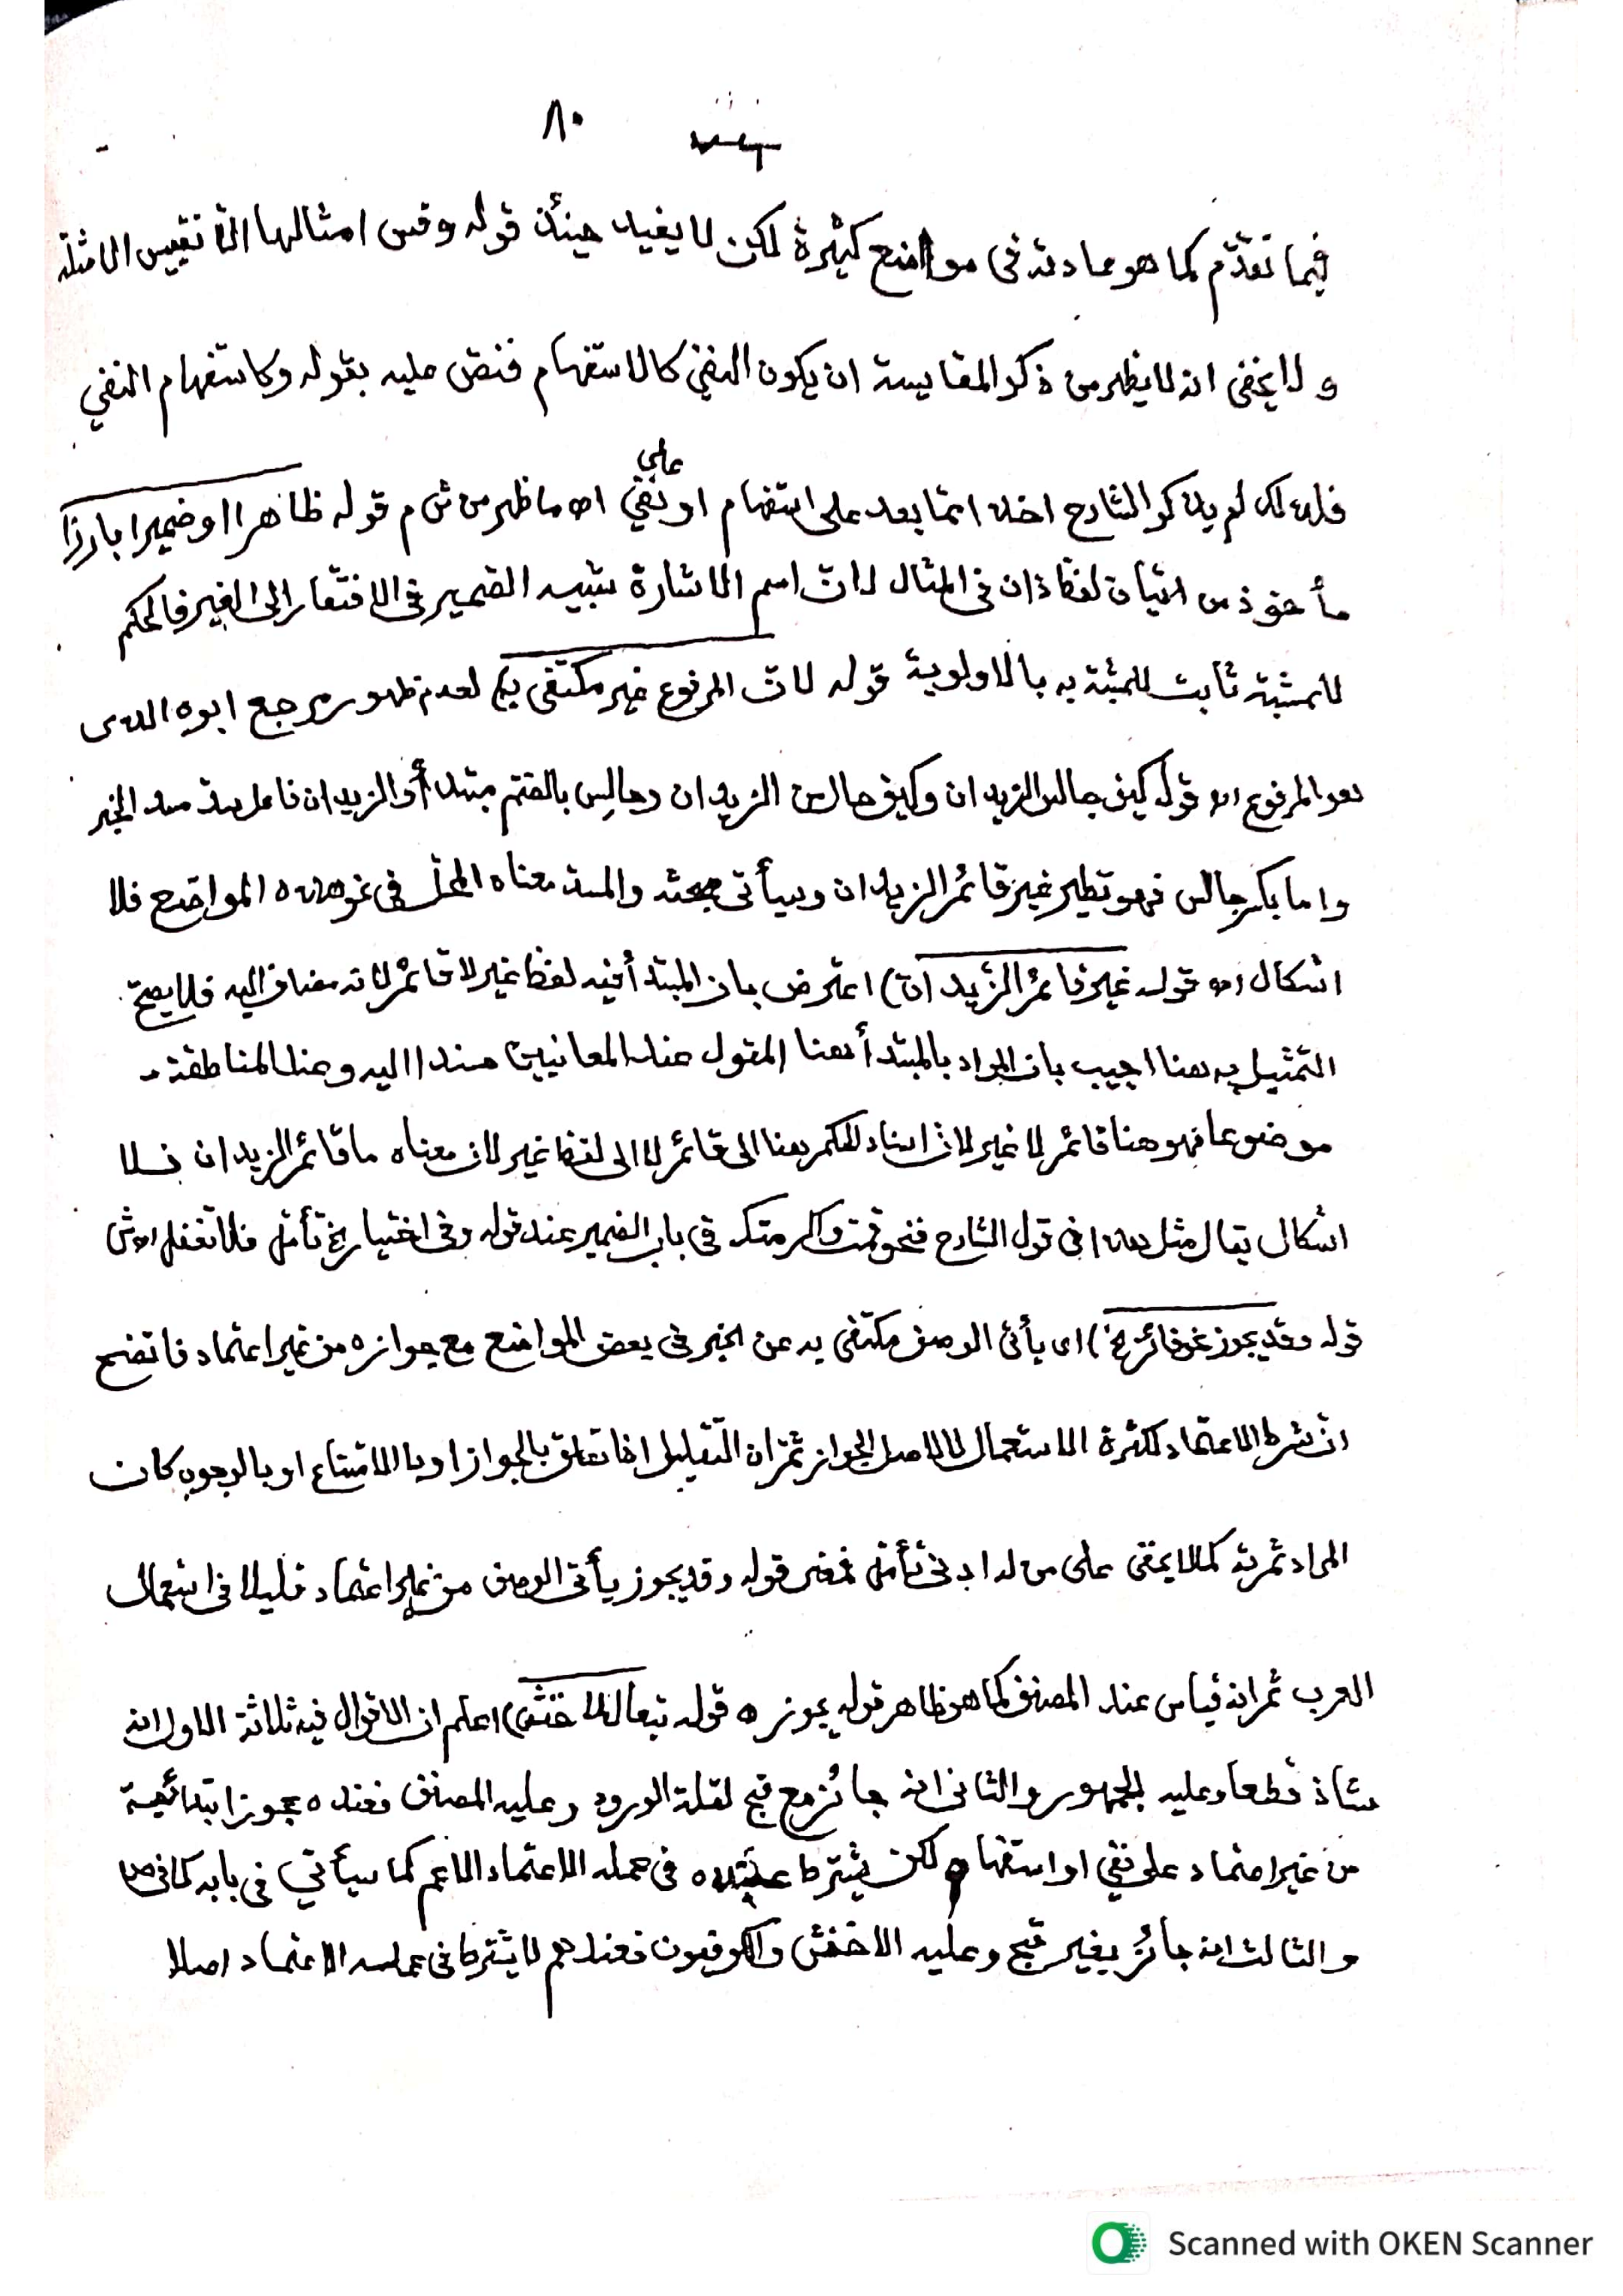 ٨٠
فيما تقدّم كما هو عادته فى مواضع كثيرة لكن لا يفيد حينئذ قوله وقس امثالها الا تقييس الامثلة
و لا يخفى انه لا يظهر من ذكر المقايسة ان يكون النفي كالاستفهام فنصّ عليه بقوله وكاستفهام النفي
فلذلك لم يذكر الشارح اخذ انما بعد على استفهام او نفي اه ما ظهر من ش م قوله ظاهرا او ضميرا بارزا
على
مأخوذ من اتيان لفظ ذان فى المثال لان اسم الاشارة شبيه الضمير فى الافتقار الى الغير فالحكم
للمشبّه ثابت للمشبّه به بالاولوية قوله لان المرفوع غير مكتفى به) لعدم ظهور مرجع ابوه الذى
هو المرفوع اه قوله كيف جالس الزيدان وكيف جالس الزيدان وجالس بالضم مبتدأ والزيدان فاعل سدّ مسد الخبر
واما بكسر جالس فهو نظير غير قائم الزيدان وسيأتى بحثه والمسد معناه المحلّ فى نحو هذه المواضع فلا
اشكال اه قوله غير قائم الزيدان) اعترض بان المبتدأ فيه لفظ غير لا قائم لانه مضاف اليه فلا يصحّ
التمثيل به هنا اجيب بان المراد بالمبتدأ هنا المقول عند المعانيين مسندا اليه وعند المناطقة
موضوعا فهو هنا قائم لا غير لان اسناد الحكم هنا الى قائم لا الى لفظ غير لان معناه ما قائم الزيدان فلا
اشكال يقال مثل هذا فى قول الشارح فنحو قمت واكرمتك فى باب الضمير عند قوله وفى اختيار الخ تأمّل فلا تغفل اه ش
قوله وقد يجوز نحو فائز الخ) اى يأتى الوصف مكتفى به عن الخبر فى بعض المواضع مع جوازه من غير اعتماد فاتضح
ان شرط الاعتماد لكثرة الاستعمال لا لاصل الجواز ثم ان التقليل اذا تعلق بالجواز او بالامتناع او بالوجوب كان
المراد ثمرته كما لا يخفى على من له ادنى تأمّل فمعنى قوله وقد يجوز يأتى الوصف من غير اعتماد قليلا فى استعمال
العرب ثم انه قياس عند المصنف كما هو ظاهر قوله يجوز ه قوله تبعا للاخفش) اعلم ان الاقوال فيه ثلاثة الاول انه
شاذ قطعا وعليه الجمهور والثانى انه جائز مع قبح لقلة الورود وعليه المصنف فعنده يجوز ابتدائية
من غير اعتماد على نفي او استفهام لكن يشترط عنده فى عمله الاعتماد الاعم كما سيأتي فى بابه كما فى ص
والثالث انه جائز بغير قبح وعليه الاخفش والكوفيون فعندهم لا يشترط فى عمله الاعتماد اصلا
Scanned with OKEN Scanner